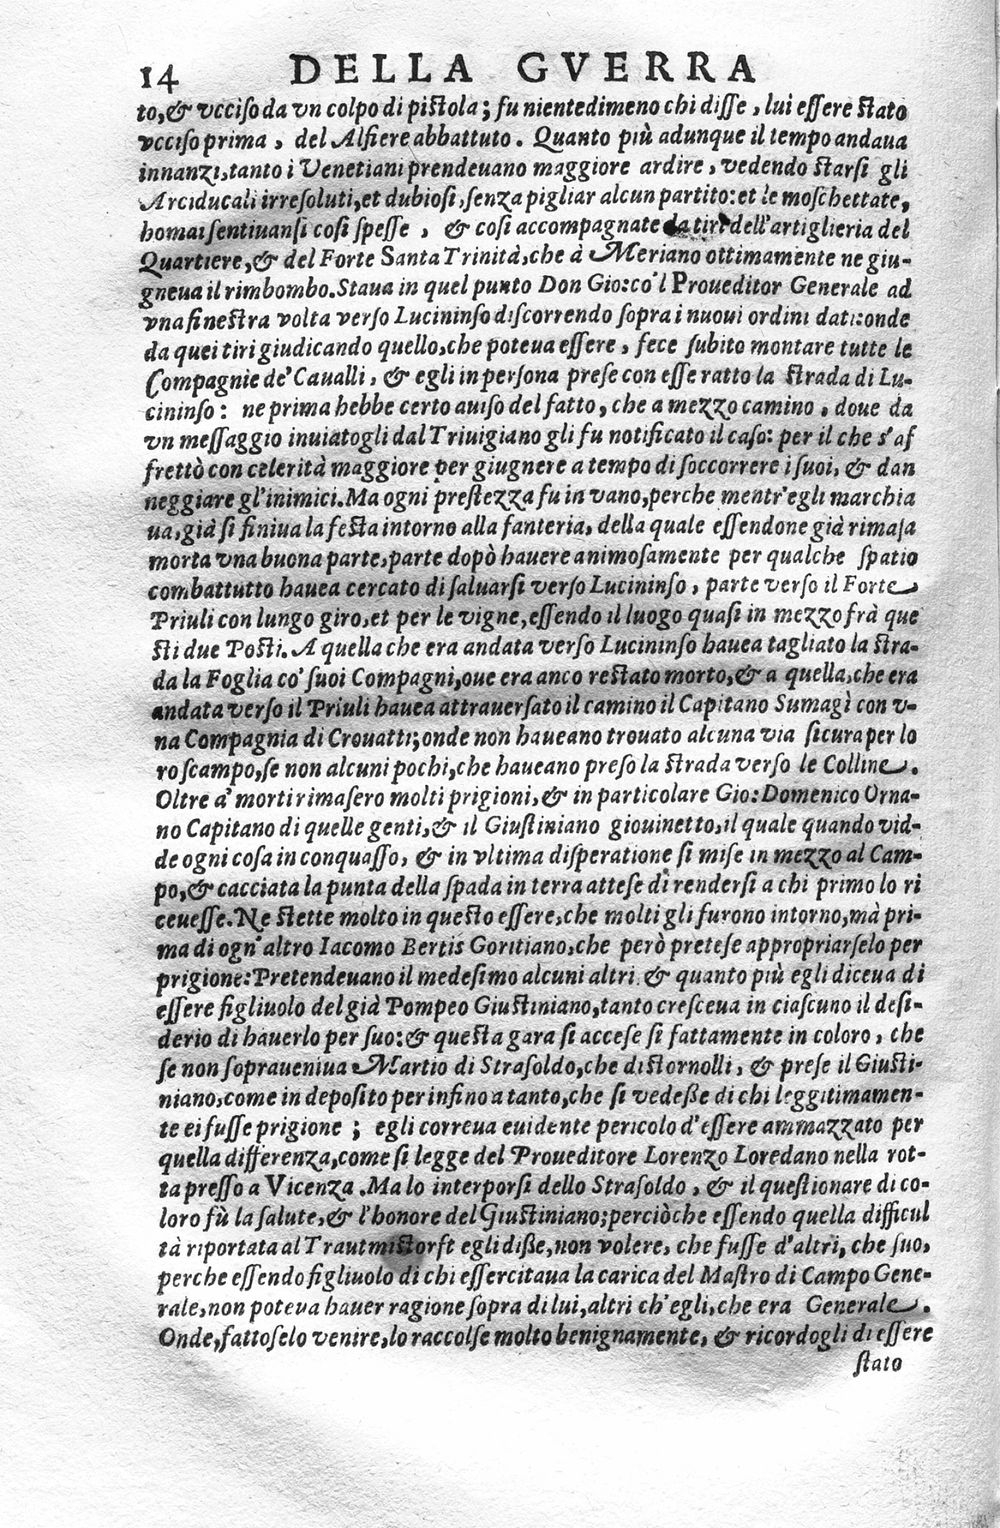 14 DELLA GVERRA
to,& vcciso da vn colpo di pistola; fu nientedimeno chi disse, lui essere stato
vcciso prima, del Alfiere abbattuto. Quanto più adunque il tempo andaua
innanzi,tanto i Venetiani prendeuano maggiore ardire, vedendo starsi gli
Arciducali irresoluti,et dubiosi,senza pigliar alcun partito:et le moschettate,
homai sentiuansi così spesse, & così accompagnate da tiri dell'artiglieria del
Quartiere,& del Forte Santa Trinità,che à Meriano ottimamente ne giu-
gneua il rimbombo.Staua in quel punto Don Gio:co'l Proueditor Generale ad
vna finestra volta verso Lucininso discorrendo sopra i nuoui ordini dati:onde
da quei tiri giudicando quello,che poteua essere, fece subito montare tutte le
Compagnie de' Caualli, & egli in persona prese con esse ratto la strada di Lu-
cininso: ne prima hebbe certo auiso del fatto, che a mezzo camino, doue da
vn messaggio inuiatogli dal Triuigiano gli fu notificato il caso: per il che s'af
frettò con celerità maggiore per giugnere a tempo di soccorrere i suoi, & dan
neggiare gl'inimici.Ma ogni prestezza fu in vano,perche mentr'egli marchia
ua,già si finiua la festa intorno alla fanteria, della quale essendone già rimasa
morta vna buona parte,parte dopò hauere animosamente per qualche spatio
combattutto hauea cercato di saluarsi verso Lucininso, parte verso il Forte
Priuli con lungo giro,et per le vigne,essendo il luogo quasi in mezzo frà que
sti due Posti. A quella che era andata verso Lucininso hauea tagliato la stra-
da la Foglia co' suoi Compagni,oue era anco restato morto,& a quella,che era
andata verso il Priuli hauea attrauersato il camino il Capitano Sumagì con v-
na Compagnia di Crouatti;onde non haueano trouato alcuna via sicura per lo
ro scampo,se non alcuni pochi,che haueano preso la strada verso le Colline.
Oltre a' morti rimasero molti prigioni,& in particolare Gio:Domenico Orna-
no Capitano di quelle genti,& il Giustiniano giouinetto,il quale quando vid-
de ogni cosa in conquasso, & in vltima disperatione si mise in mezzo al Cam-
po,& cacciata la punta della spada in terra attese di rendersi a chi primo lo ri
ceuesse.Ne stette molto in questo essere,che molti gli furono intorno,mà pri-
ma di ogn'altro Iacomo Bertis Goritiano,che però pretese appropriarselo per
prigione:Pretendeuano il medesimo alcuni altri & quanto più egli diceua di
essere figliuolo del già Pompeo Giustiniano,tanto cresceua in ciascuno il desi-
derio di hauerlo per suo:& questa gara si accese sì fattamente in coloro, che
se non soprauueniua Martio di Strasoldo,che distornolli, & prese il Giusti-
niano,come in deposito per infino a tanto,che si vedesse di chi leggitimamen-
te ei fusse prigione; egli correua euidente pericolo d'essere ammazzato per
quella differenza,come si legge del Proueditore Lorenzo Loredano nella rot-
ta presso a Vicenza.Ma lo interporsi dello Strasoldo, & il questionare di co-
loro fù la salute,& l'honore del Giustiniano;perciòche essendo quella difficul
tà riportata al Trautmistorft egli disse,non volere, che fusse d'altri, che suo,
perche essendo figliuolo di chi essercitaua la carica del Mastro di Campo Gene-
rale,non poteua hauer ragione sopra di lui,altri ch'egli,che era Generale.
Onde,fattoselo venire,lo raccolse molto benignamente, & ricordogli di essere
stato